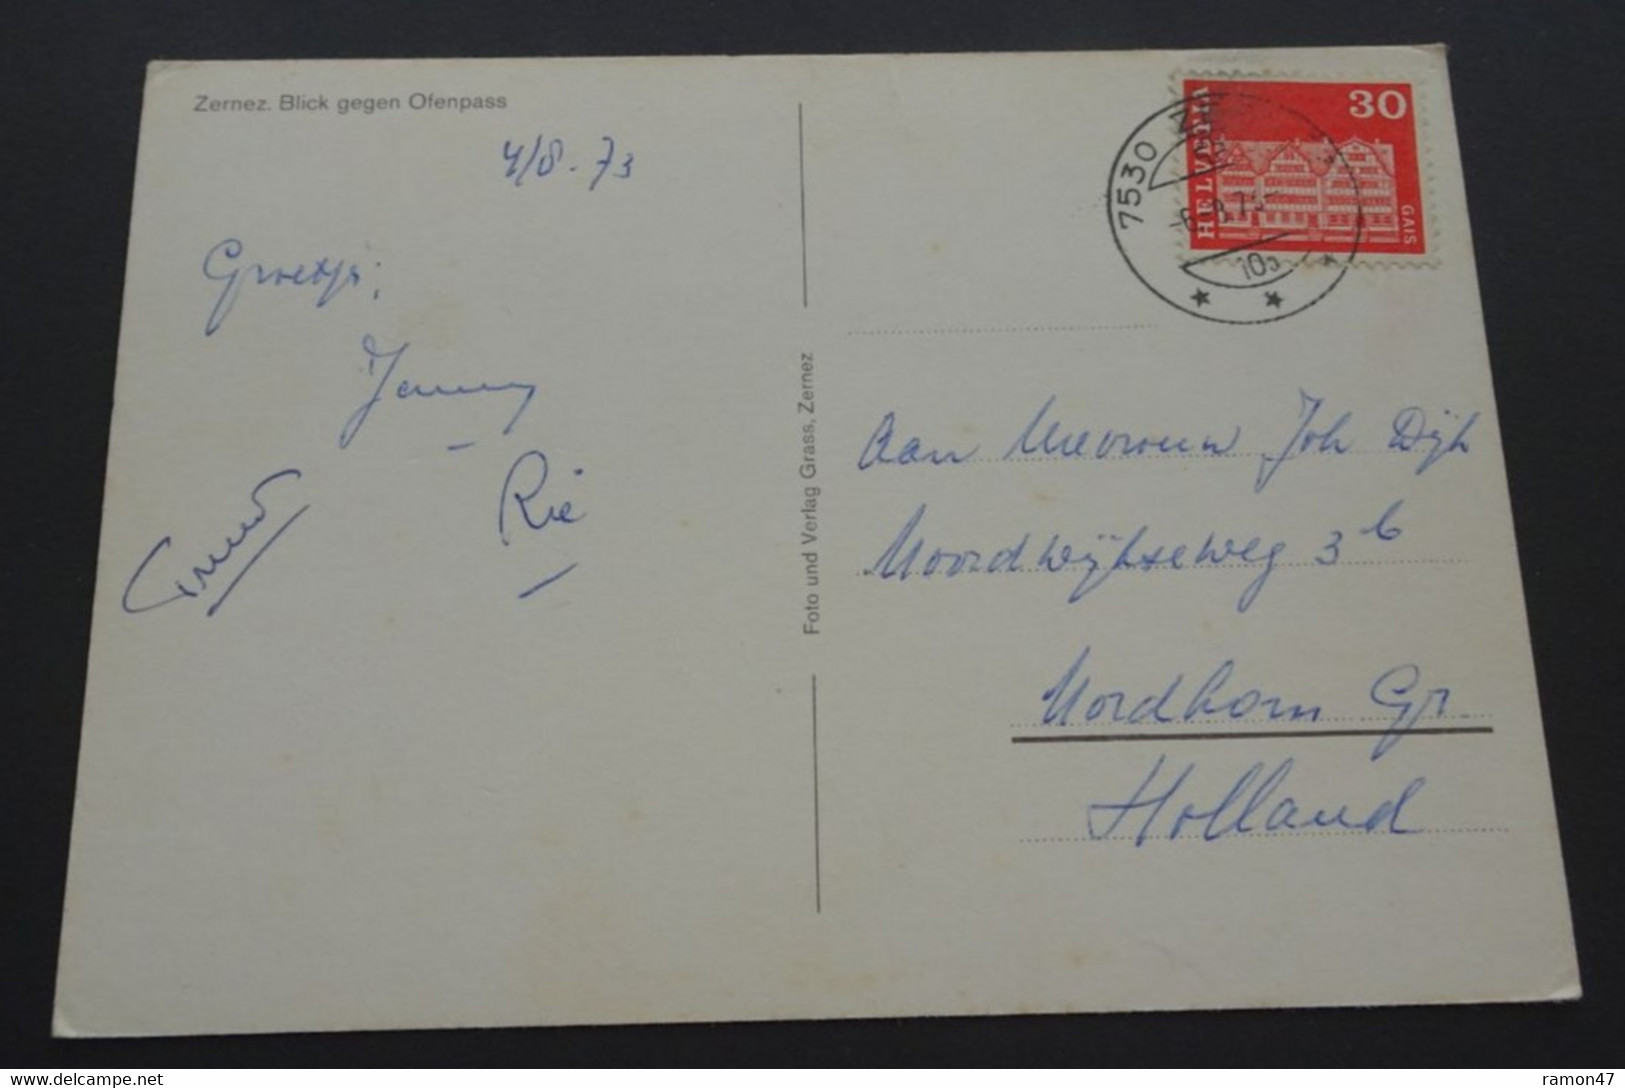 Zernez. Blick gegen Ofenpass
4/8-73
Groetjes:
Jenny
Rie
Foto und Verlag Grass, Zernez
HELVETIA
30
GAIS
7530
-6.-8.73-
10
Aan Mevrouw Joh Dijk
Noordwijkseweg 3b
Nordhorn Gr.
Holland
delcampe.net
ramon47